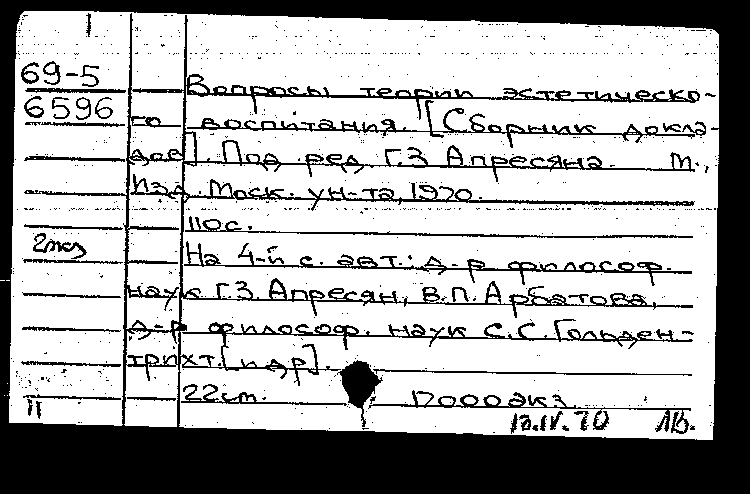 69-5
6596
Вопросы теории эстетическо-
го воспитания. [Сборник докла-
дов]. Под ред. Г.З Апресяна. М.,
Изд. Моск. ун-та, 1970.
110с.
2экз
На 4-й с. авт.: д-р философ.
наук Г.З. Апресян, В.П. Арбатова,
д-р философ. наук С.С. Гольден-
трихт [и др].
22см. 17000экз
II
13.IV.70 ЛВ.